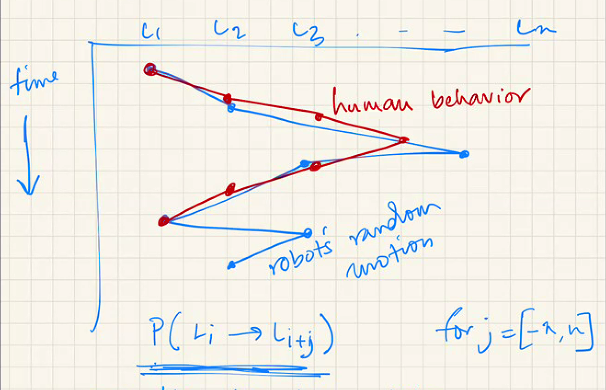 L1 L2 L3 . - - Ln
time
human behavior
robot's random
motion
P(Li → Li+j) for j = [-n, n]